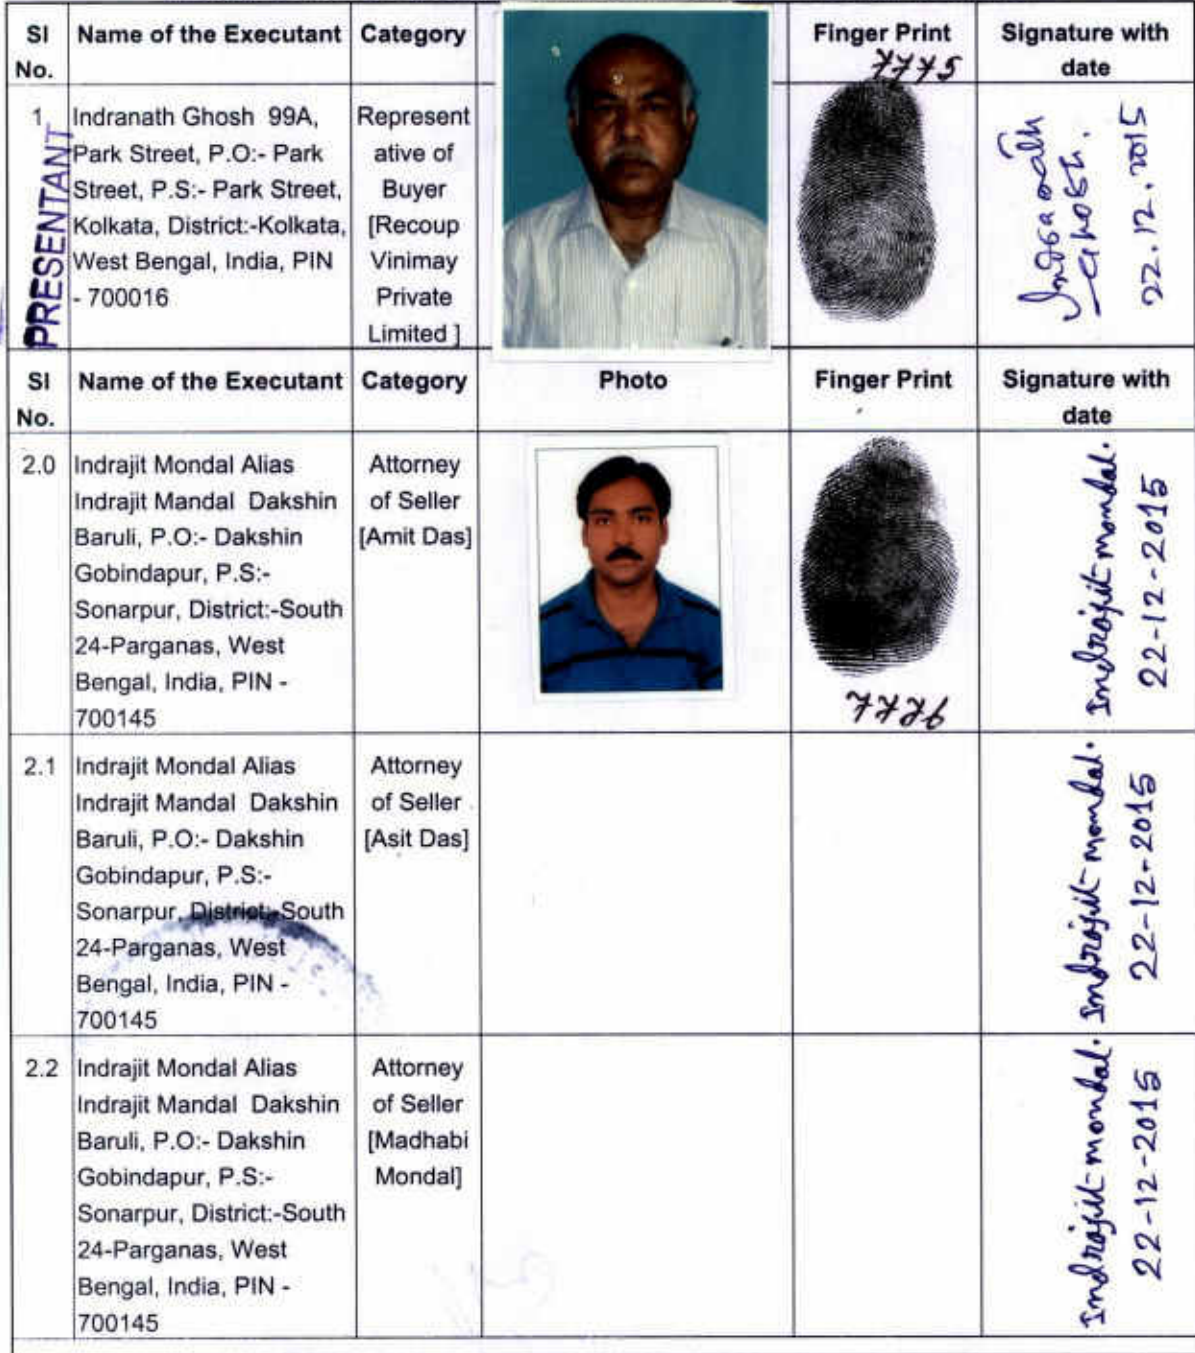 Sl No. Name of the Executant Category Finger Print Signature with date
7775
1 Indranath Ghosh 99A,
Park Street, P.O:- Park
Street, P.S:- Park Street,
Kolkata, District:-Kolkata,
West Bengal, India, PIN
- 700016
Represent
ative of
Buyer
[Recoup
Vinimay
Private
Limited ]
Indranath
Ghosh.
22.12.2015
PRESENTANT
Sl No. Name of the Executant Category Photo Finger Print Signature with date
2.0 Indrajit Mondal Alias
Indrajit Mandal Dakshin
Baruli, P.O:- Dakshin
Gobindapur, P.S:-
Sonarpur, District:-South
24-Parganas, West
Bengal, India, PIN -
700145
Attorney
of Seller
[Amit Das]
7776
Indrajit mondal.
22-12-2015
2.1 Indrajit Mondal Alias
Indrajit Mandal Dakshin
Baruli, P.O:- Dakshin
Gobindapur, P.S:-
Sonarpur, District:-South
24-Parganas, West
Bengal, India, PIN -
700145
Attorney
of Seller
[Asit Das]
Indrajit mondal.
22-12-2015
2.2 Indrajit Mondal Alias
Indrajit Mandal Dakshin
Baruli, P.O:- Dakshin
Gobindapur, P.S:-
Sonarpur, District:-South
24-Parganas, West
Bengal, India, PIN -
700145
Attorney
of Seller
[Madhabi
Mondal]
Indrajit mondal.
22-12-2015